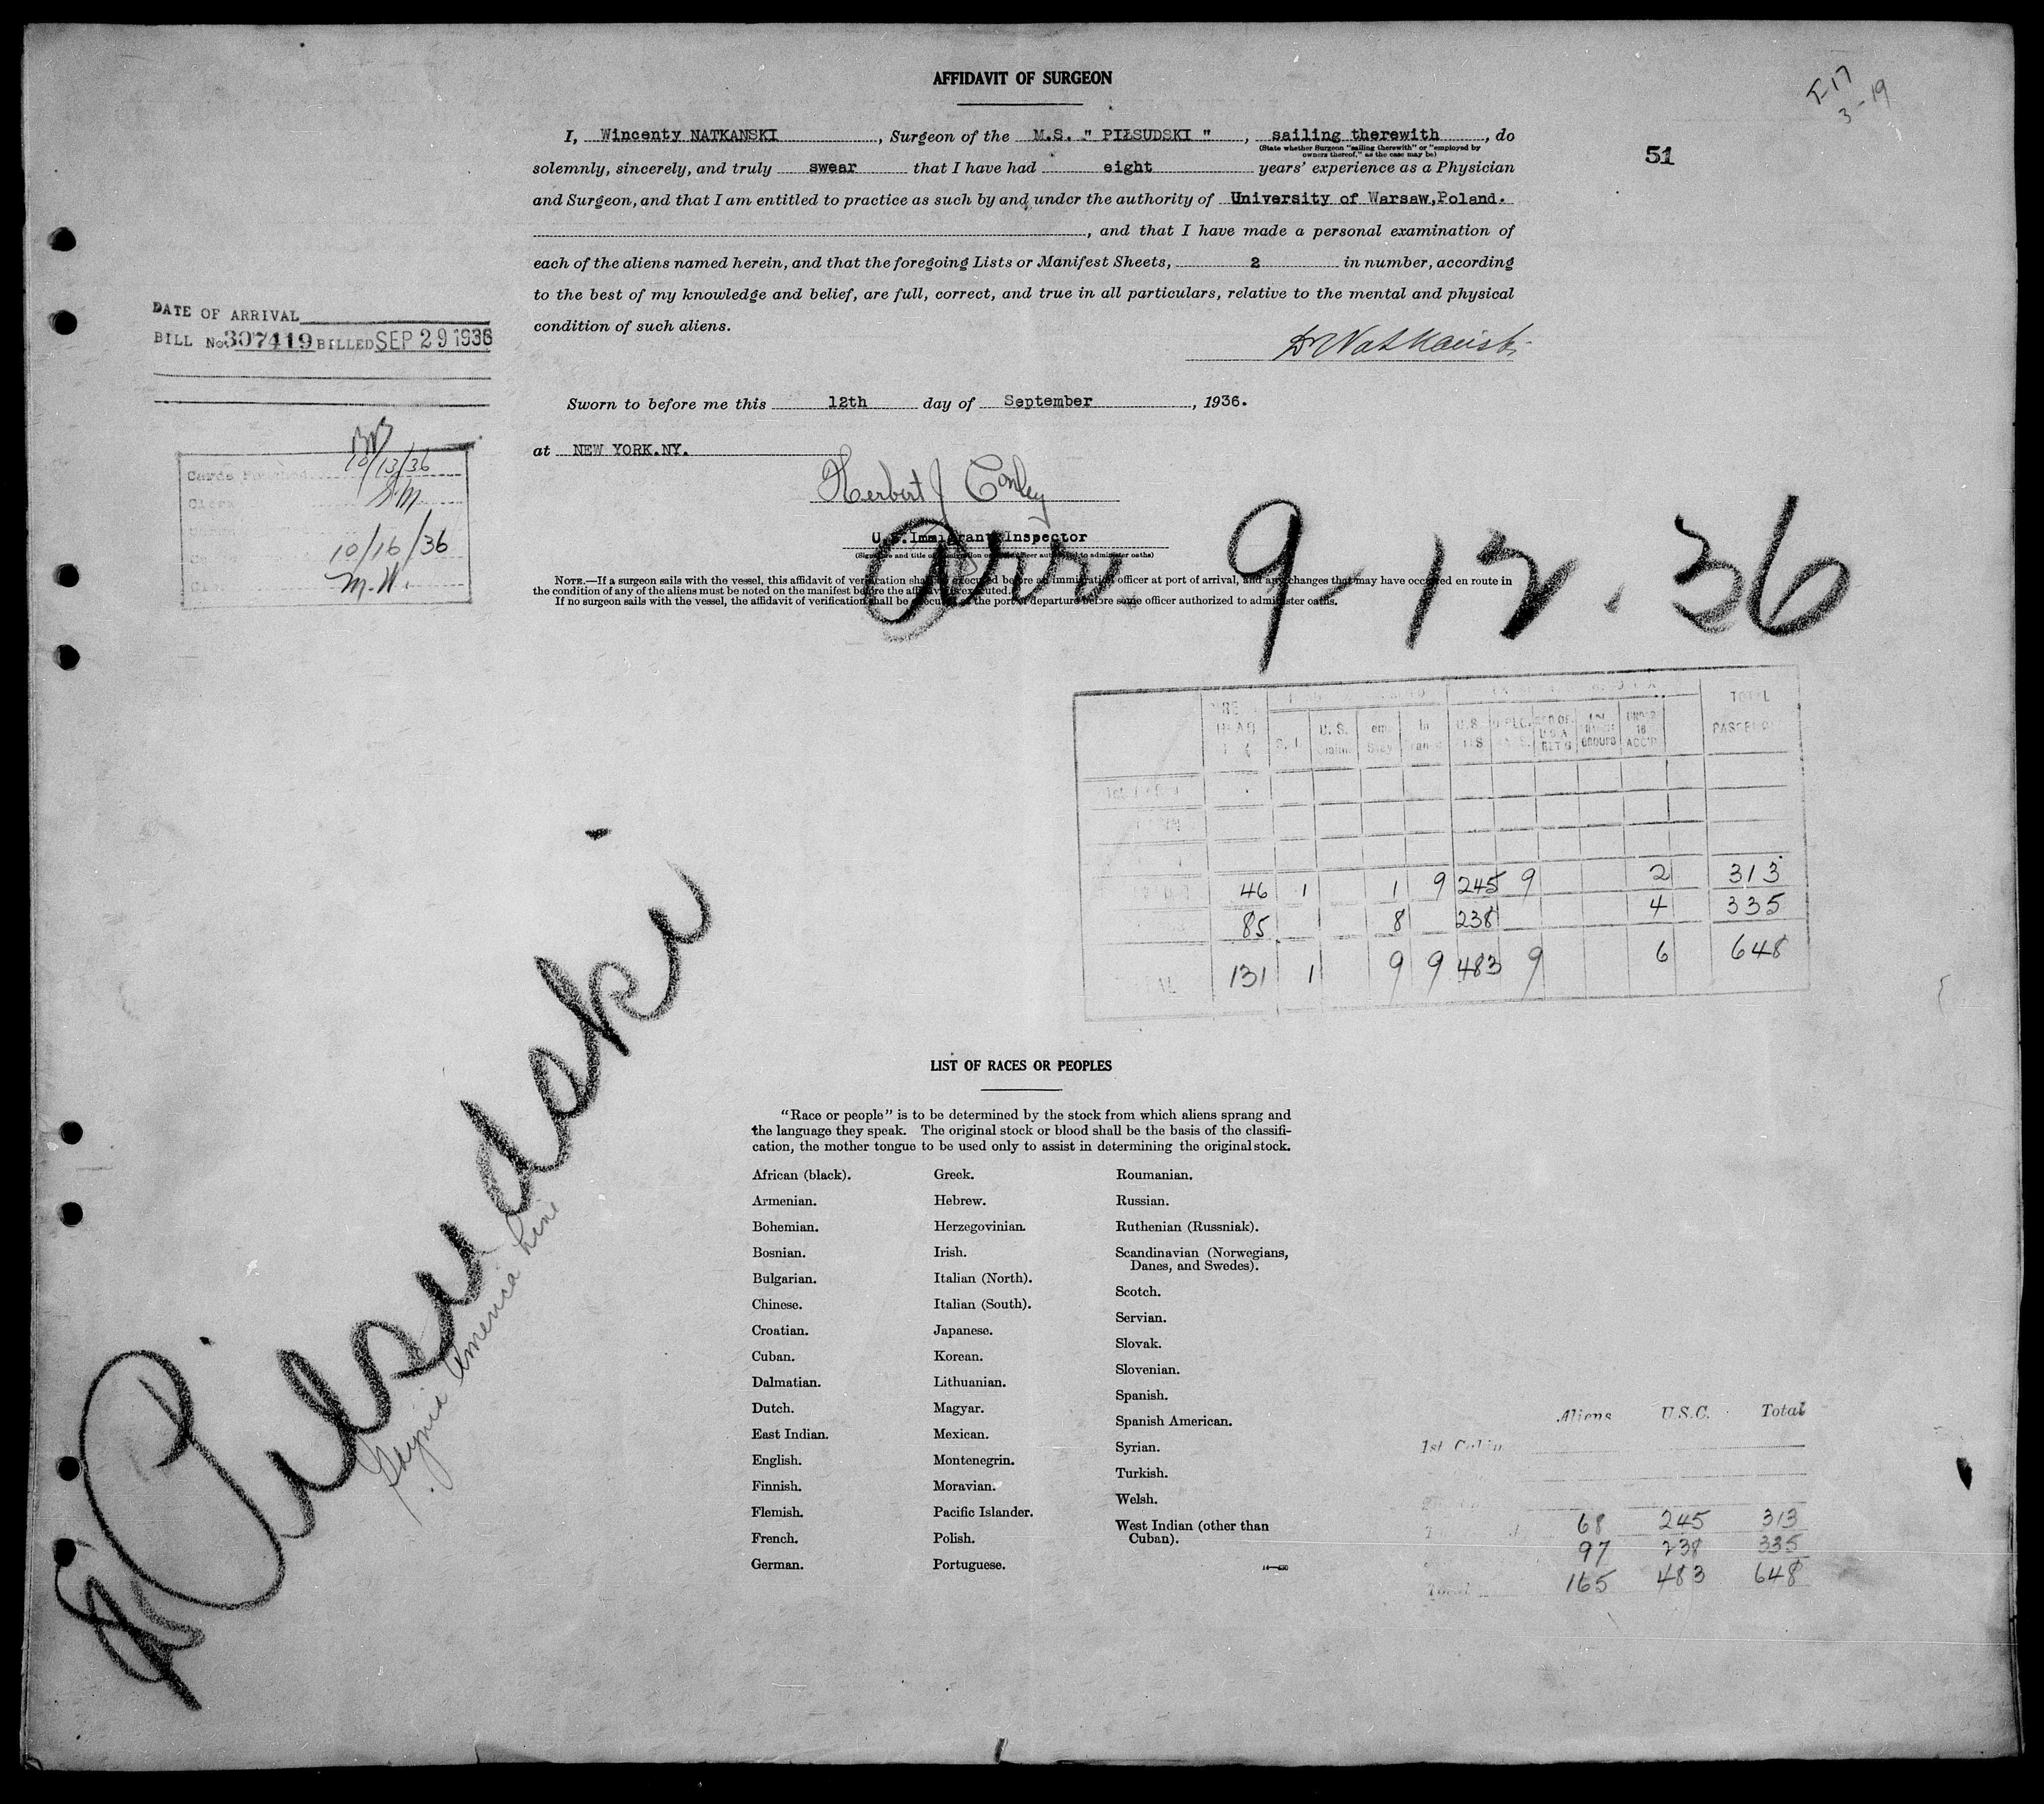 AFFIDAVIT OF SURGEON
T-17
3-19
51
I, Wincenty NATKANSKI, Surgeon of the M.S. " PIŁSUDSKI ", sailing therewith, do
(State whether Surgeon "sailing therewith" or "employed by
owners thereof," as the case may be)
solemnly, sincerely, and truly swear that I have had eight years' experience as a Physician
and Surgeon, and that I am entitled to practice as such by and under the authority of University of Warsaw,Poland.
, and that I have made a personal examination of
each of the aliens named herein, and that the foregoing Lists or Manifest Sheets, 2 in number, according
to the best of my knowledge and belief, are full, correct, and true in all particulars, relative to the mental and physical
condition of such aliens.
Dr Natkański
DATE OF ARRIVAL
BILL No. 307419 BILLED SEP 29 1936
Sworn to before me this 12th day of September, 1936.
at NEW YORK.NY.
Herbert J Conley
U.S. Immigrant Inspector
(Signature and title of immigration or other officer authorized to administer oaths)
NOTE.—If a surgeon sails with the vessel, this affidavit of verification shall be executed before an immigration officer at port of arrival, and any changes that may have occurred en route in
the condition of any of the aliens must be noted on the manifest before the affidavit is executed.
If no surgeon sails with the vessel, the affidavit of verification shall be executed at the port of departure before some officer authorized to administer oaths.
Cards
10/13/36
10/16/36
M.W.
Arr 9-12.36
TOTAL
U. S.
S. I.
UNDER
16
ACC'P
46 1 1 9 245 9 2 313
85 8 238 4 335
131 1 9 9 483 9 6 648
Pilsudski
Gdynia America Line
LIST OF RACES OR PEOPLES
"Race or people" is to be determined by the stock from which aliens sprang and
the language they speak. The original stock or blood shall be the basis of the classifi-
cation, the mother tongue to be used only to assist in determining the original stock.
African (black).
Armenian.
Bohemian.
Bosnian.
Bulgarian.
Chinese.
Croatian.
Cuban.
Dalmatian.
Dutch.
East Indian.
English.
Finnish.
Flemish.
French.
German.
Greek.
Hebrew.
Herzegovinian.
Irish.
Italian (North).
Italian (South).
Japanese.
Korean.
Lithuanian.
Magyar.
Mexican.
Montenegrin.
Moravian.
Pacific Islander.
Polish.
Portuguese.
Roumanian.
Russian.
Ruthenian (Russniak).
Scandinavian (Norwegians,
Danes, and Swedes).
Scotch.
Servian.
Slovak.
Slovenian.
Spanish.
Spanish American.
Syrian.
Turkish.
Welsh.
West Indian (other than
Cuban).
Aliens U.S.C. Total
1st Cabin
68 245 313
97 238 335
Total 165 483 648